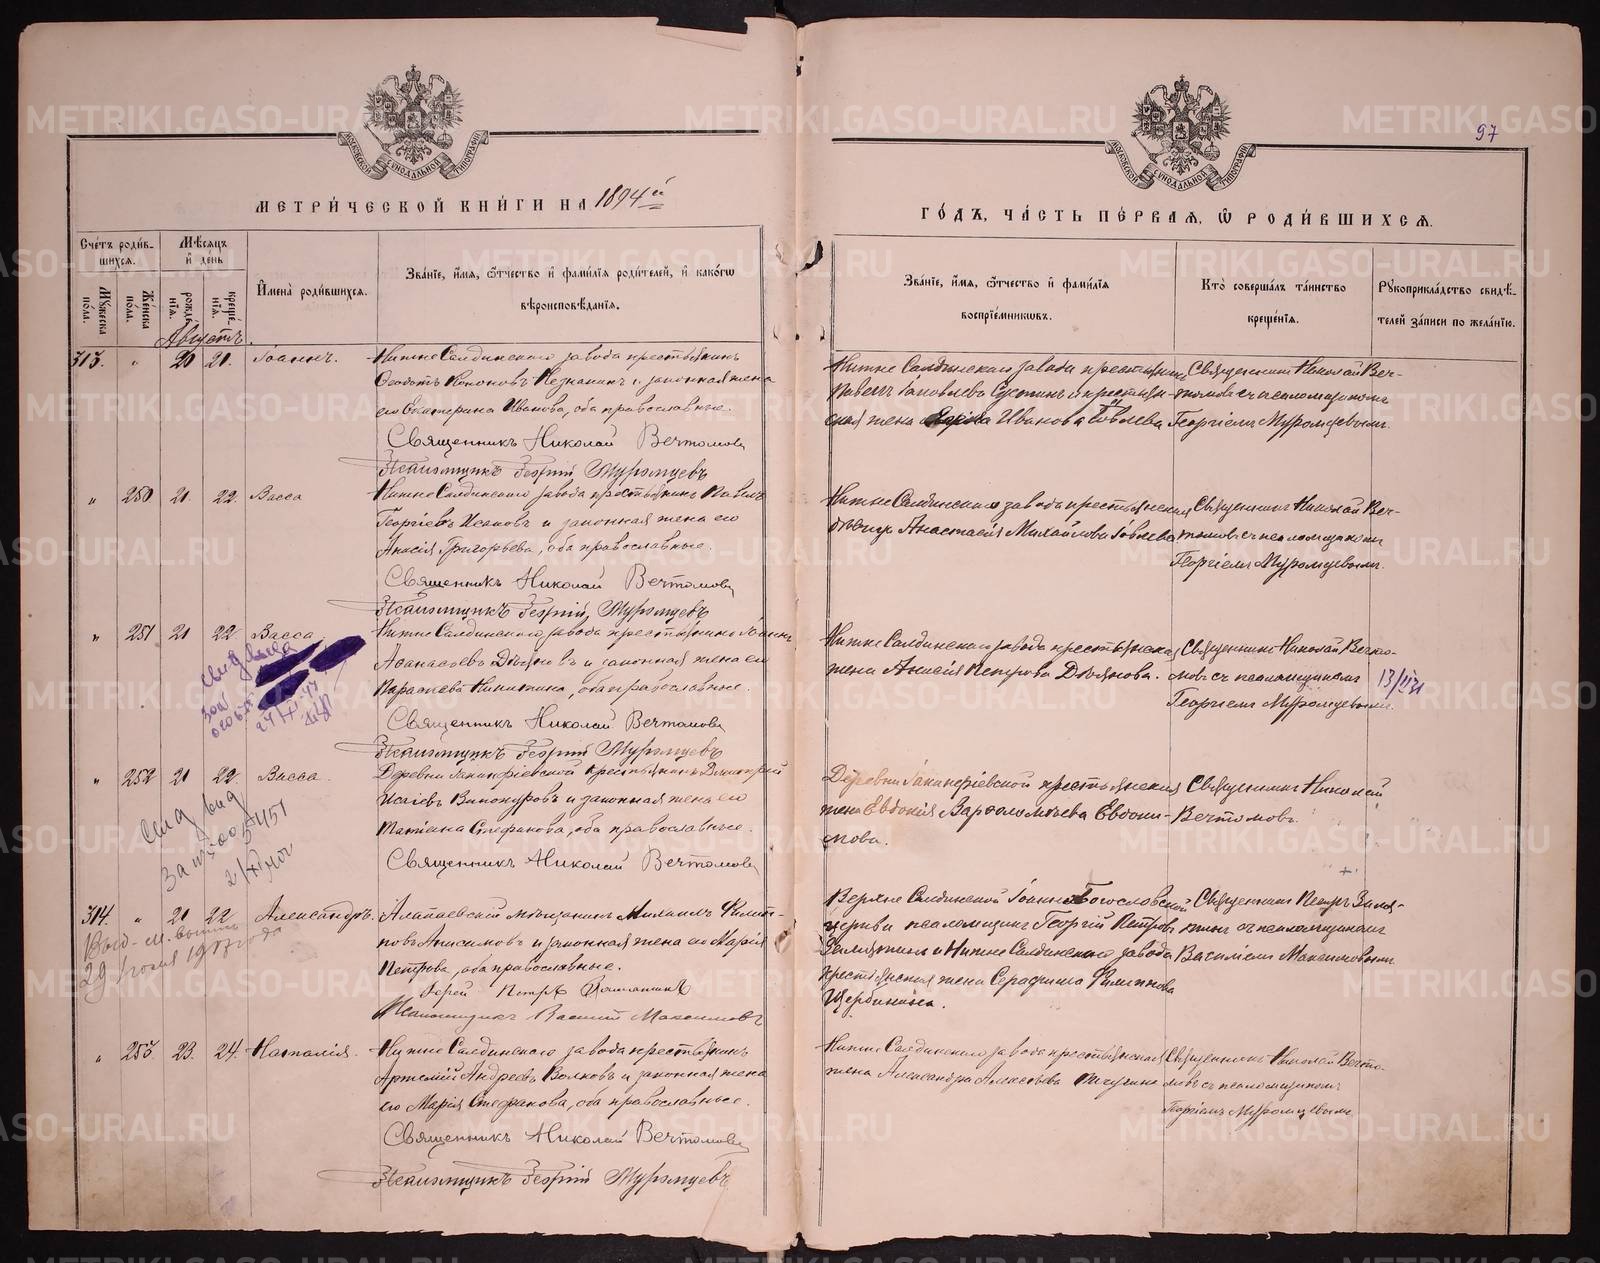 97
МОСКОВСКОЙ СѴНОДАЛЬНОЙ ТИПОГРАФІИ
МОСКОВСКОЙ СѴНОДАЛЬНОЙ ТИПОГРАФІИ
МЕТРИ́ЧЕСКОЙ КНИ́ГИ НА 1894й
ГО́ДЪ, ЧА́СТЬ ПЕ́РВАЯ, Ѡ РОДИ́ВШИХСЯ.
Сче́тъ роди́вшихся.
Мꙋ́жеска пола.
Же́нска пола.
Мѣ́сяцъ и де́нь
рожде́нїя.
креще́нїя.
И҆мена̀ роди́вшихся.
Зва́нїе, и҆́мя, ѻ҆́тчество и҆ фамі́лїя роди́телей, и҆ како́гѡ вѣроисповѣ́данїя.
Зва́нїе, и҆́мя, ѻ҆́тчество и҆ фамі́лїя воспрїе́мникѡвъ.
Кто̀ соверша́лъ та́инство креще́нїя.
Рꙋкоприкла́дство свидѣ́телей за́писи по жела́нїю.
Августъ.
313. " 20 21. Іоаннъ.
Нижне Салдинскаго завода крестьянинъ
Ѳеодотъ Кононовъ и законная жена
его Екатерина Иванова, оба православные.
Священникъ Николай Вечтомовъ
Псаломщикъ Георгій Муромцевъ
Нижне Салдинскаго завода крестьянинъ
Павелъ Іаковлевъ и крестьян-
ская жена Иванова
Священникъ Николай Веч-
томовъ съ псаломщикомъ
Георгіемъ Муромцевымъ.
" 250 21. 22. Васса
Нижне Салдинскаго завода крестьянинъ Павелъ
Георгіевъ Исаковъ и законная жена его
Анисія Григорьева, оба православные.
Священникъ Николай Вечтомовъ
Псаломщикъ Георгій Муромцевъ
Нижне Салдинскаго завода крестьянская
дѣвица Анастасія Михайлова
Священникъ Николай Веч-
томовъ съ псаломщикомъ
Георгіемъ Муромцевымъ.
" 251 21 22 Васса
Нижне Салдинскаго завода крестьянинъ Іоаннъ
Аѳанасьевъ и законная жена его
Параскева Никитина, оба православные.
Священникъ Николай Вечтомовъ
Псаломщикъ Георгій Муромцевъ
Нижне Салдинскаго завода крестьянская
жена Анисія Петрова
Священникъ Николай Вечто-
мовъ съ псаломщикомъ
Георгіемъ Муромцевымъ.
" 252 21 22 Васса.
Деревни крестьянинъ Димитрій
Исаіевъ Винокуровъ и законная жена его
Татіана Стефанова, оба православные.
Священникъ Николай Вечтомовъ
Деревни крестьянская
жена Евдокія Варѳоломѣева Евдоки-
мова.
Священникъ Николай
Вечтомовъ.
314. " 21 22 Александръ.
Алапаевскій мѣщанинъ Михаилъ Филип-
повъ Анисимовъ и законная жена его Марія
Петрова, оба православные.
Іерей Петръ
Псаломщикъ Василій Максимовъ
Верхне Салдинской Іоанно Богословской
церкви псаломщикъ Георгій Петровъ
и Нижне Салдинскаго завода
крестьянская жена Серафима Филиппова
Щербинина.
Священникъ Петръ
съ псаломщикомъ
Василіемъ Максимовымъ
" 253. 23. 24. Наталія.
Нижне Салдинскаго завода крестьянинъ
Артемій Андреевъ Волковъ и законная жена
его Марія Стефанова, оба православные.
Священникъ Николай Вечтомовъ
Псаломщикъ Георгій Муромцевъ
Нижне Салдинскаго завода крестьянская
жена Александра Алексѣева
Священникъ Николай Вечто-
мовъ съ псаломщикомъ
Георгіемъ Муромцевымъ
METRIKI.GASO-URAL.RU